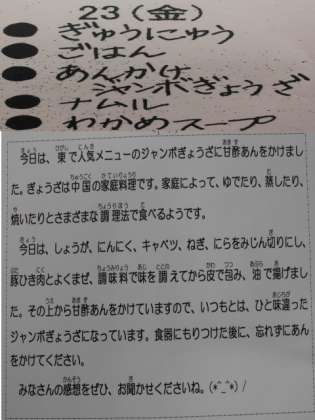 23(金)
● ぎゅうにゅう
● ごはん
● あんかけ
ジャンボぎょうざ
● ナムル
● わかめスープ
今日は、東で人気メニューのジャンボぎょうざに甘酢あんをかけまし
た。ぎょうざは中国の家庭料理です。家庭によって、ゆでたり、蒸したり、
焼いたりとさまざまな調理法で食べるようです。
今日は、しょうが、にんにく、キャベツ、ねぎ、にらをみじん切りにし、
豚ひき肉とよくまぜ、調味料で味を調えてから皮で包み、油で揚げまし
た。その上から甘酢あんをかけていますので、いつもとは、ひと味違った
ジャンボぎょうざになっています。食器にもりつけた後に、忘れずにあん
をかけてください。
みなさんの感想をぜひ、お聞かせくださいね。(*^_^*) /